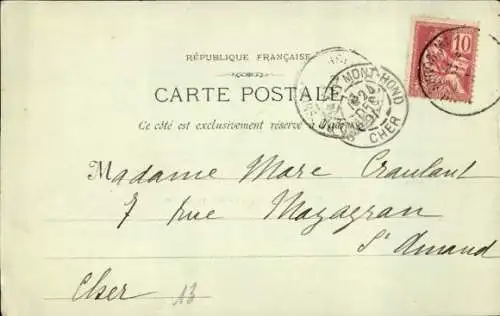 RÉPUBLIQUE FRANÇAISE
10
MONT-ROND
CHER
CARTE POSTALE
Ce côté est exclusivement réservé
Madame Marc Craulant
7 rue Mazagran
St Amand
Cher 13